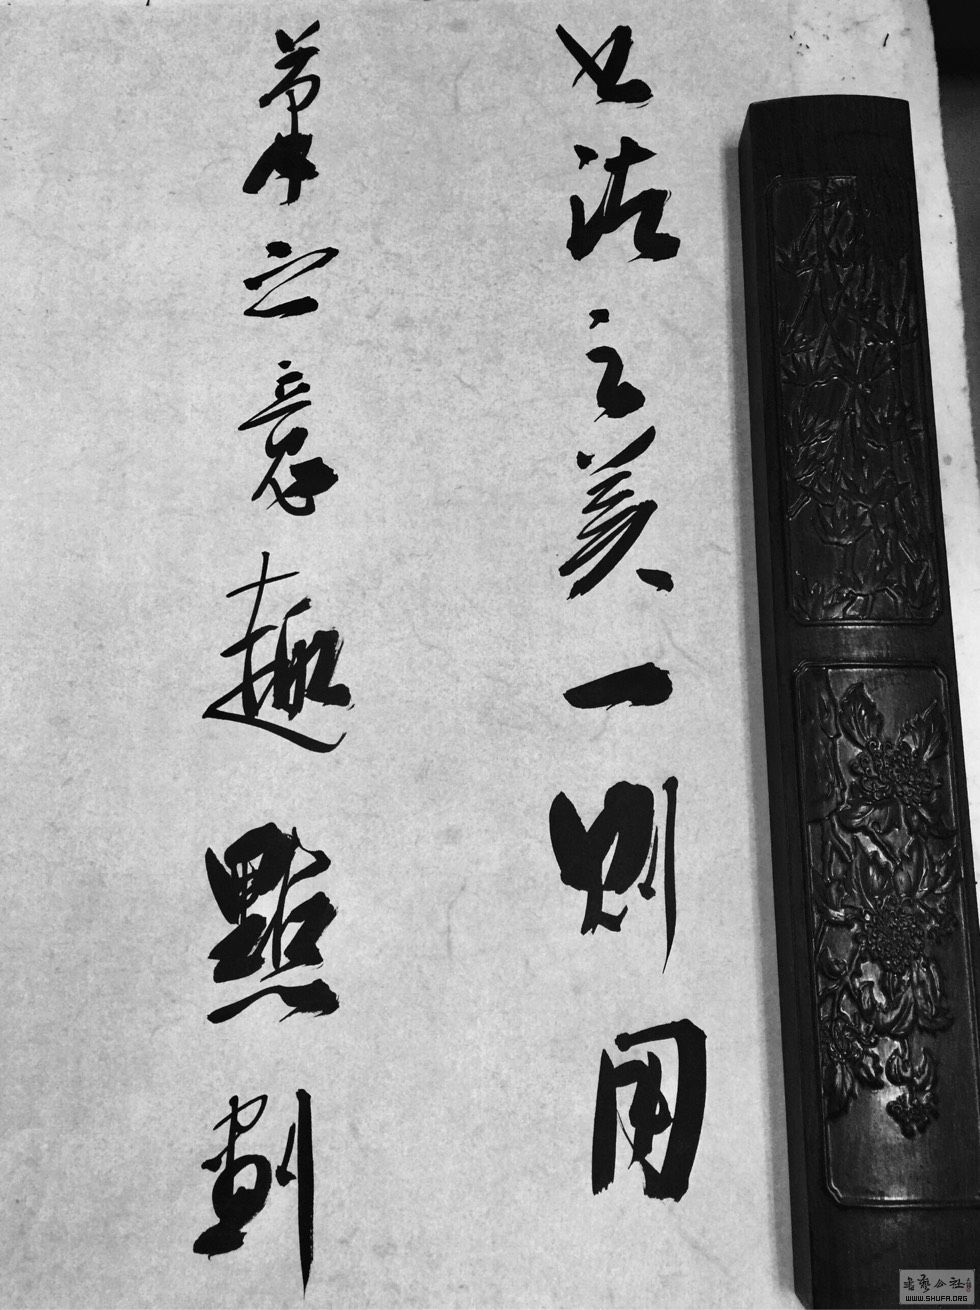 书法之美一则用
笔之意趣點劃
书艺公社
WWW.SHUFA.ORG